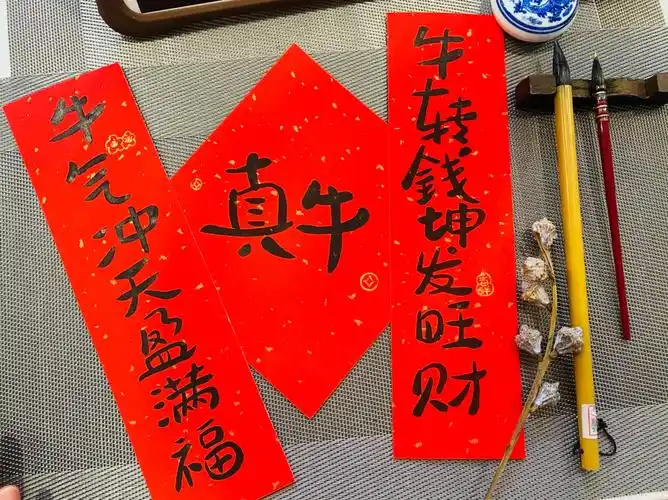 牛转錢坤发旺财
真牛
牛气冲天盈满福
吉祥